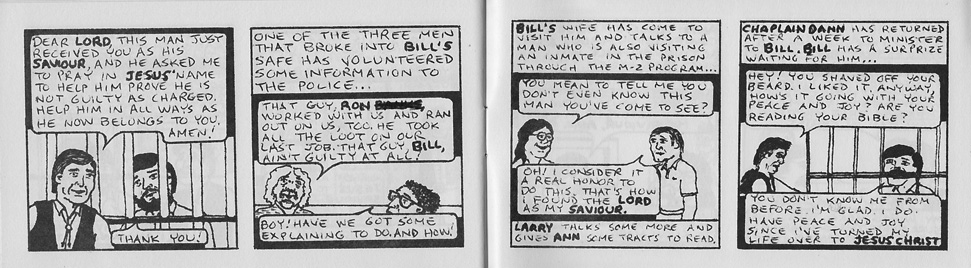 DEAR LORD, THIS MAN JUST
RECEIVED YOU AS HIS
SAVIOUR, AND HE ASKED ME
TO PRAY IN JESUS' NAME
TO HELP HIM PROVE HE IS
NOT GUILTY AS CHARGED.
HELP HIM IN ALL WAYS AS
HE NOW BELONGS TO YOU.
AMEN!
THANK YOU!
ONE OF THE THREE MEN
THAT BROKE INTO BILL'S
SAFE HAS VOLUNTEERED
SOME INFORMATION TO
THE POLICE...
THAT GUY, RON
WORKED WITH US AND RAN
OUT ON US, TOO. HE TOOK
ALL THE LOOT ON OUR
LAST JOB. THAT GUY, BILL,
AIN'T GUILTY AT ALL!
BOY! HAVE WE GOT SOME
EXPLAINING TO DO. AND HOW!
BILL'S WIFE HAS COME TO
VISIT HIM AND TALKS TO A
MAN WHO IS ALSO VISITING
AN INMATE IN THE PRISON
THROUGH THE M-2 PROGRAM...
YOU MEAN TO TELL ME YOU
DON'T EVEN KNOW THIS
MAN YOU'VE COME TO SEE?
OH! I CONSIDER IT
A REAL HONOR TO
DO THIS. THAT'S HOW
I FOUND THE LORD
AS MY SAVIOUR.
LARRY TALKS SOME MORE AND
GIVES ANN SOME TRACTS TO READ.
CHAPLAIN DANN HAS RETURNED
AFTER A WEEK TO MINISTER
TO BILL. BILL HAS A SURPRIZE
WAITING FOR HIM...
HEY! YOU SHAVED OFF YOUR
BEARD. I LIKED IT. ANYWAY,
HOW'S IT GOING WITH YOUR
PEACE AND JOY? ARE YOU
READING YOUR BIBLE?
YOU DON'T KNOW ME FROM
BEFORE. I'M GLAD. I DO
HAVE PEACE AND JOY
SINCE I'VE TURNED MY
LIFE OVER TO JESUS CHRIST